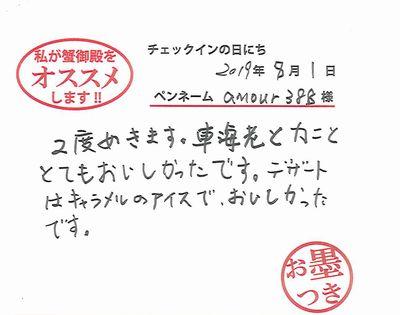 私が蟹御殿を
オススメ
します!!
チェックインの日にち
2019年 8月 1日
ペンネーム amour388 様
2度めきます。車海老とカニと
とてもおいしかったです。デザート
はキャラメルのアイスで、おいしかった
です。
お墨
つき